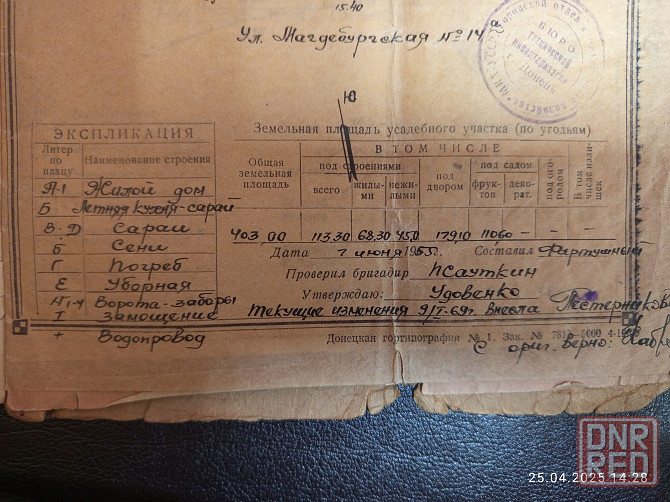 15.40
Ул. Магдебургская № 14
БЮРО
технической
инвентаризации
г. Донецк
Ю
ЭКСПЛИКАЦИЯ
Литер по плану Наименование строения
А-1 Жилой дом
Б Летняя кухня-сарай
В-Д Сараи
Б Сени
Г Погреб
Е Уборная
№1-4 Ворота-заборы
I Замощение
+ Водопровод
Земельная площадь усадебного участка (по угодьям)
Общая земельная площадь
В ТОМ ЧИСЛЕ
под строениями
всего жилыми нежилыми
под двором
под садом
фруктов декорат.
под огородом
в том числе излишек
403,00 113,30 68,30 45,0 179,10 110,60 — — —
Дата 7 июня 1965г. Составил Фиртушный
Проверил бригадир Исауткин
Утверждаю: Удовенко
Текущие изменения 9/I-69г. внесла
Донецкая гортипография № 1. Зак. №
С ориг. верно:
DNR
RED
25.04.2025 14:28